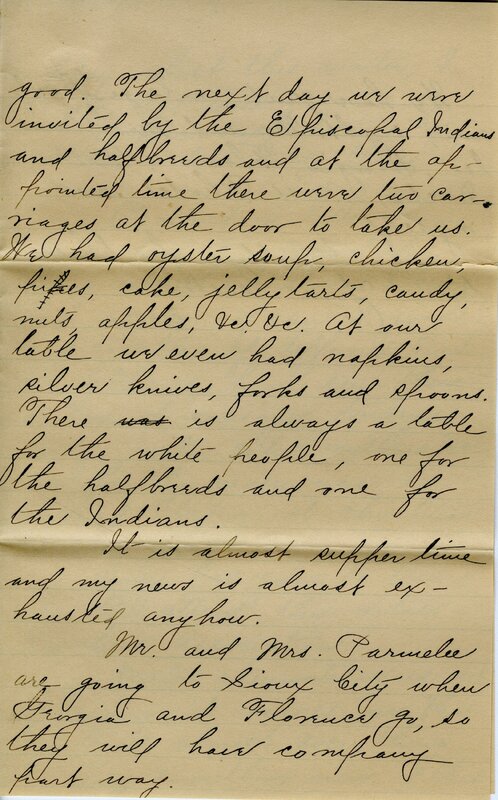 good. The next day we were
invited by the Episcopal Indians
and halfbreeds and at the ap-
pointed time there were two car-
riages at the door to take us.
We had oyster soup, chicken,
pies, cake, jelly tarts, candy,
nuts, apples, &c. &c. At our
table we even had napkins,
silver knives, forks and spoons.
There was is always a table
for the white people, one for
the halfbreeds and one for
the Indians.
It is almost supper time
and my news is almost ex-
hausted anyhow.
Mr. and Mrs. Parmelee
are going to Sioux City when
Georgia and Florence go, so
they will have company
part way.